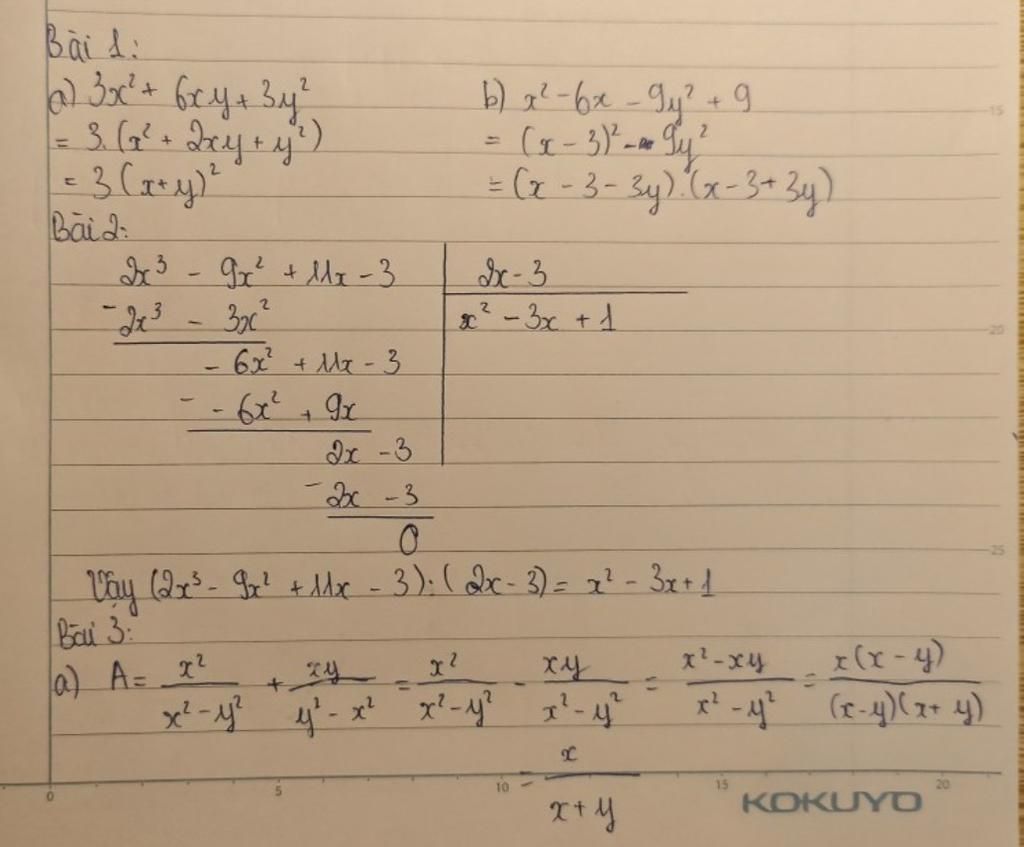 Bài 1:
a) 3x² + 6xy + 3y²
= 3.(x² + 2xy + y²)
= 3(x+y)²
b) x² - 6x - 9y² + 9
= (x - 3)² - 9y²
= (x - 3 - 3y).(x - 3 + 3y)
Bài 2:
2x³ - 9x² + 11x - 3 | 2x - 3
- 2x³ - 3x² | x² - 3x + 1
- 6x² + 11x - 3
- - 6x² + 9x
2x - 3
- 2x - 3
0
Vậy (2x³ - 9x² + 11x - 3):(2x - 3) = x² - 3x + 1
Bài 3:
a) A = x²/(x² - y²) + xy/(y² - x²) = x²/(x² - y²) - xy/(x² - y²) = (x² - xy)/(x² - y²) = x(x - y)/((x - y)(x + y))
= x/(x + y)
15
20
25
0 5 10 15 20
KOKUYO